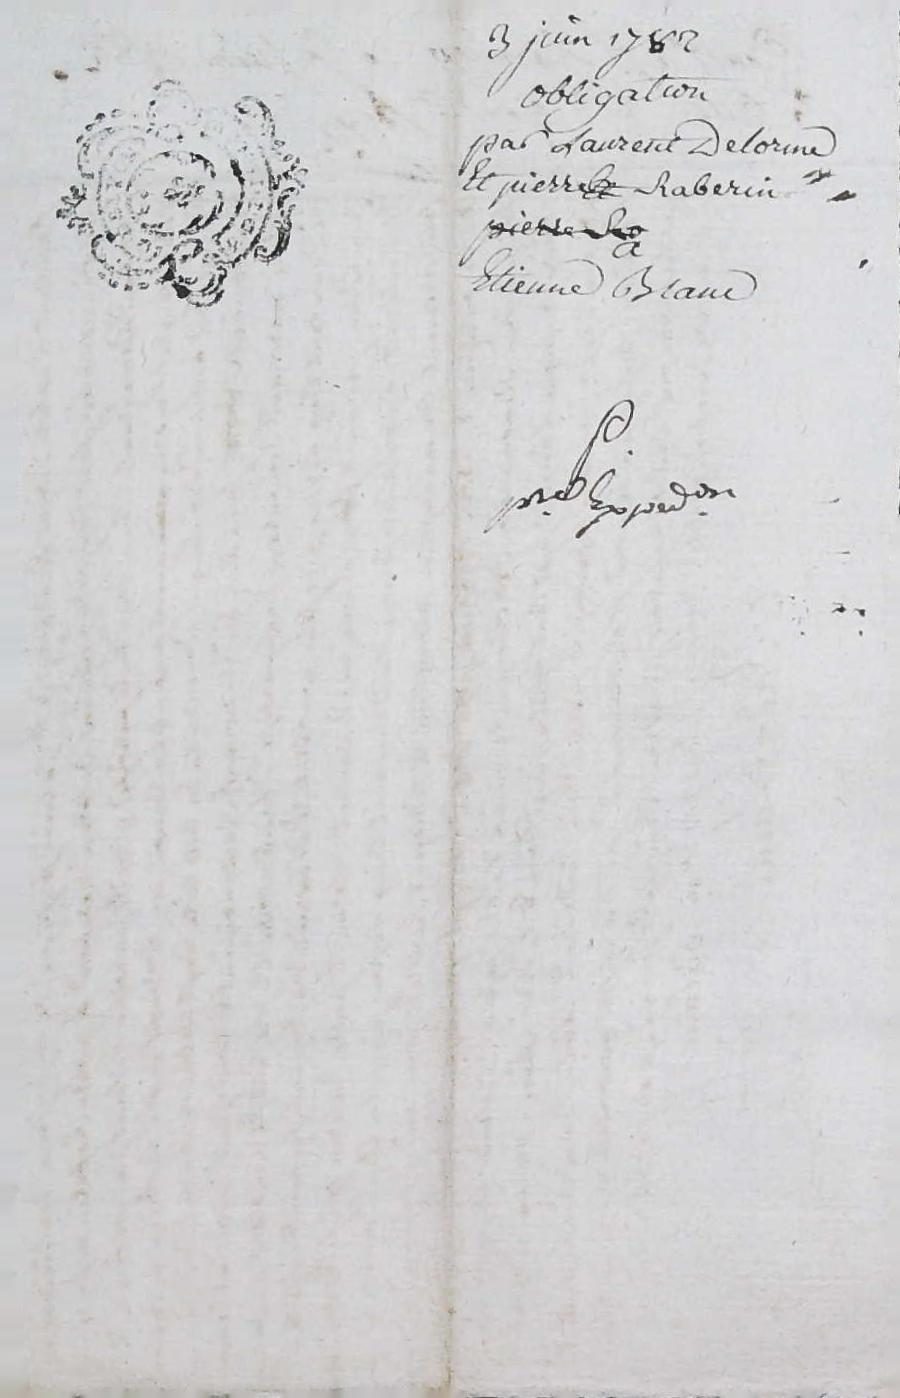 3 juin 1782
obligation
par Laurent Delorme
Et pierre Et Raberin
pierre Ro
a
Etienne Blanc
P.
pre. Expedon.